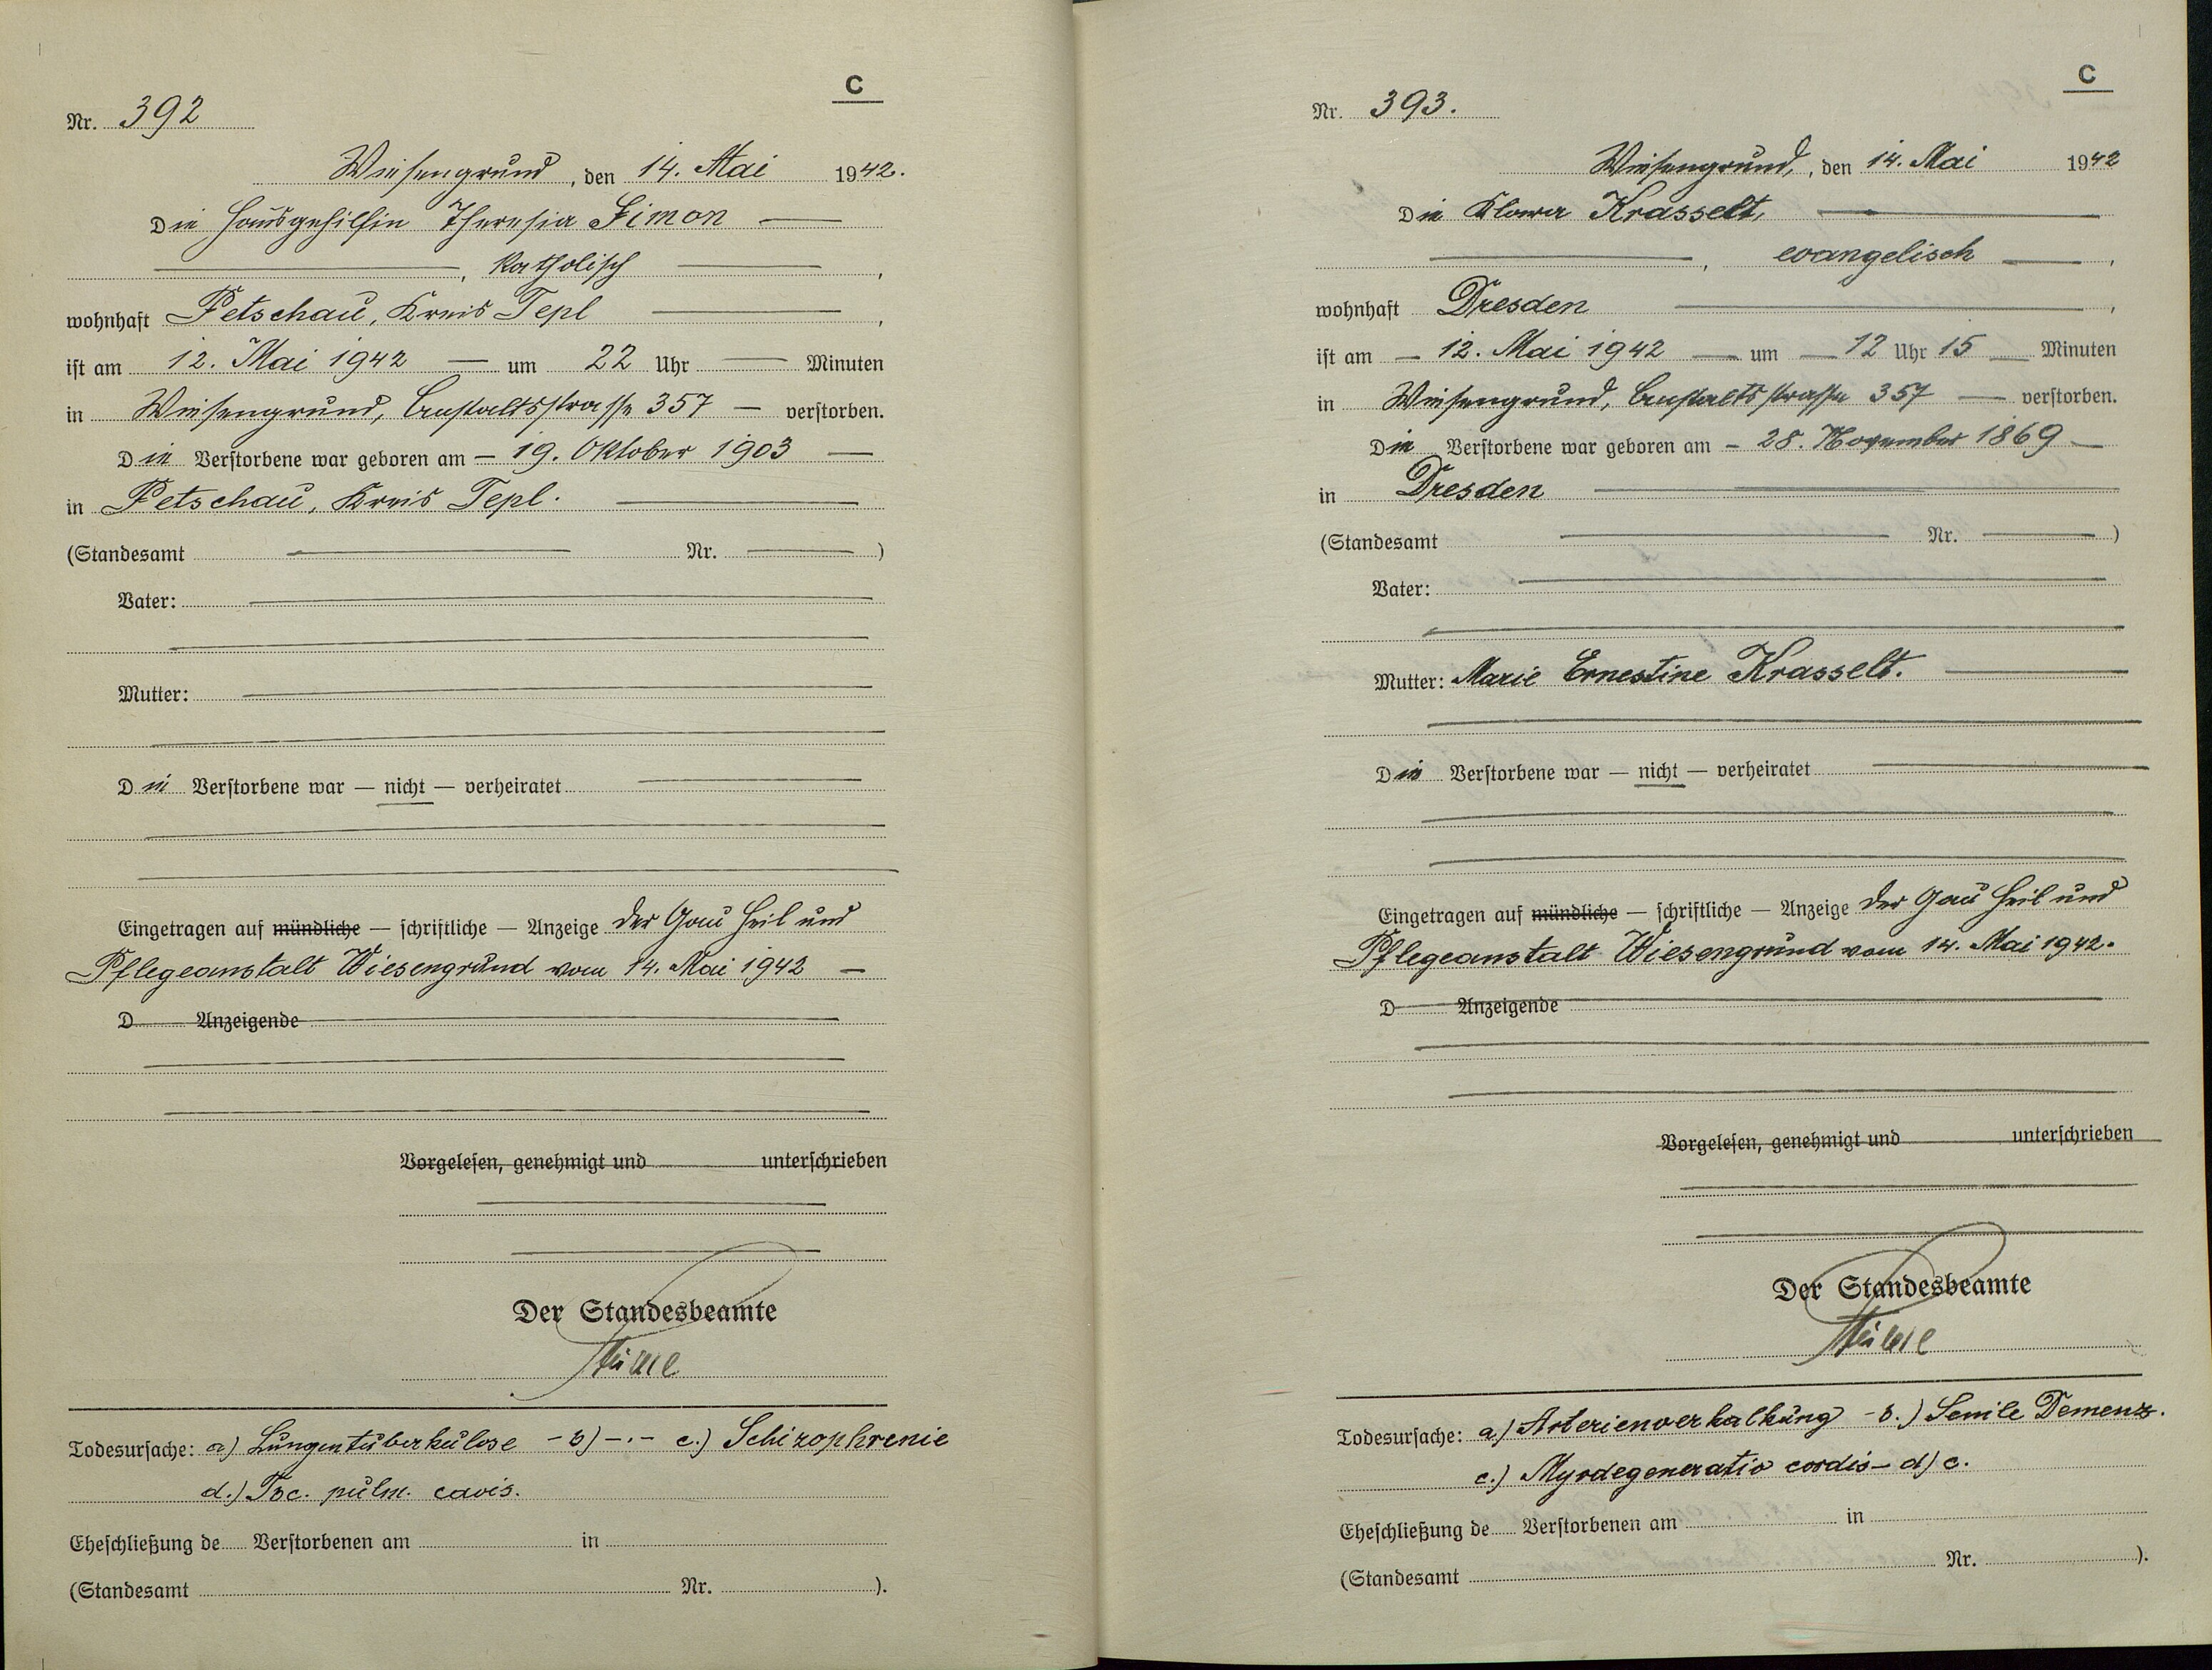 C
Nr. 392
Wiesengrund, den 14. Mai 1942.
Die Hausgehilfin Theresia Simon
, katholisch ,
wohnhaft Petschau, Kreis Tepl ,
ist am 12. Mai 1942 um 22 Uhr Minuten
in Wiesengrund, Anstaltsstrasse 357 verstorben.
Die Verstorbene war geboren am 19. Oktober 1903
in Petschau, Kreis Tepl.
(Standesamt Nr. )
Vater:
Mutter:
Die Verstorbene war — nicht — verheiratet
Eingetragen auf mündliche — schriftliche — Anzeige der Gau Heil und
Pflegeanstalt Wiesengrund vom 14. Mai 1942
D Anzeigende
Vorgelesen, genehmigt und unterschrieben
Der Standesbeamte
Todesursache: a) Lungentuberkulose - b) -.- c.) Schizophrenie
d.) Tbc. pulm. cavis.
Eheschließung de Verstorbenen am in
(Standesamt Nr. ).
C
Nr. 393.
Wiesengrund, den 14. Mai 1942
Die Klara Krasselt,
, evangelisch ,
wohnhaft Dresden ,
ist am 12. Mai 1942 um 12 Uhr 15 Minuten
in Wiesengrund, Anstaltsstrasse 357 verstorben.
Die Verstorbene war geboren am 28. November 1869
in Dresden
(Standesamt Nr. )
Vater:
Mutter: Marie Ernestine Krasselt.
Die Verstorbene war — nicht — verheiratet
Eingetragen auf mündliche — schriftliche — Anzeige der Gau Heil und
Pflegeanstalt Wiesengrund vom 14. Mai 1942.
D Anzeigende
Vorgelesen, genehmigt und unterschrieben
Der Standesbeamte
Todesursache: a.) Arterienverkalkung - b.) Senile Demenz.
c.) Myodegeneratio cordis - d) c.
Eheschließung de Verstorbenen am in
(Standesamt Nr. ).